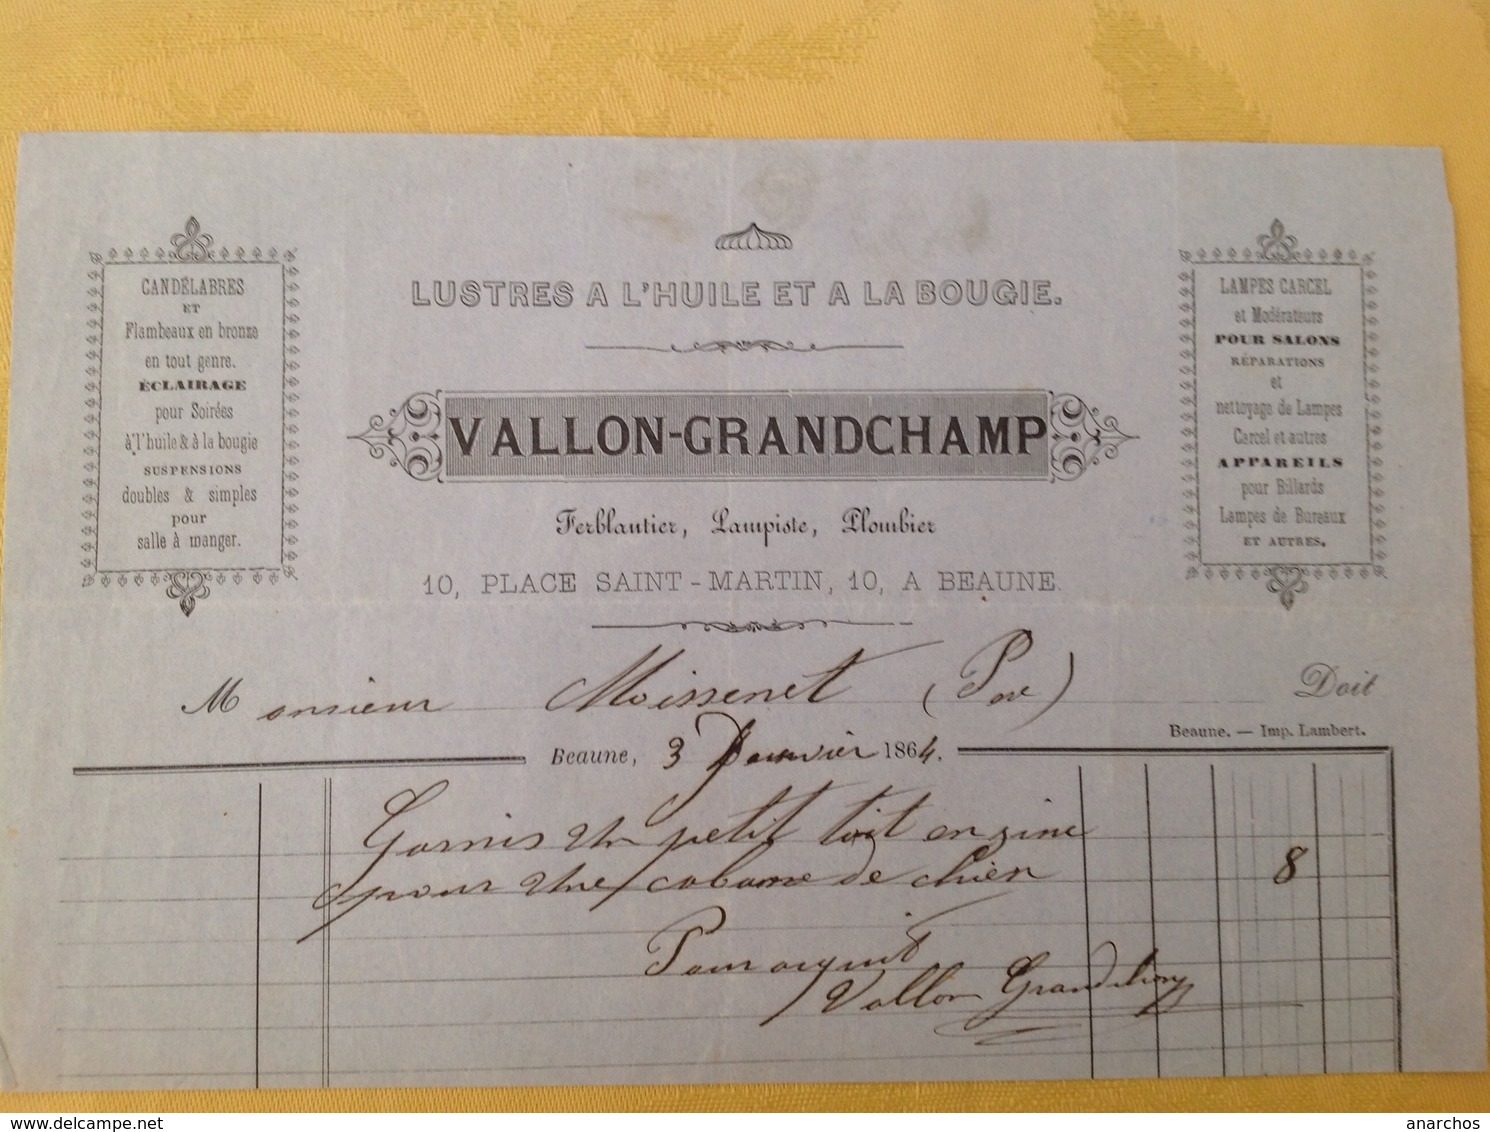 LUSTRES A L'HUILE ET A LA BOUGIE.
CANDÉLABRES
ET
Flambeaux en bronze
en tout genre.
ÉCLAIRAGE
pour Soirées
à l'huile & à la bougie
SUSPENSIONS
doubles & simples
pour
salle à manger.
VALLON-GRANDCHAMP
Ferblantier, Lampiste, Plombier
10, PLACE SAINT-MARTIN, 10, A BEAUNE.
LAMPES CARCEL
et Modérateurs
POUR SALONS
RÉPARATIONS
et
nettoyage de Lampes
Carcel et autres
APPAREILS
pour Billards
Lampes de Bureaux
ET AUTRES.
Monsieur Moissenet (Père) Doit
Beaune. — Imp. Lambert.
Beaune, 3 Janvier 1864.
Garnis un petit toit en zinc
pour une cabane de chien 8
Pour aquit
Vallon Grandchamp
delcampe.net
anarchos